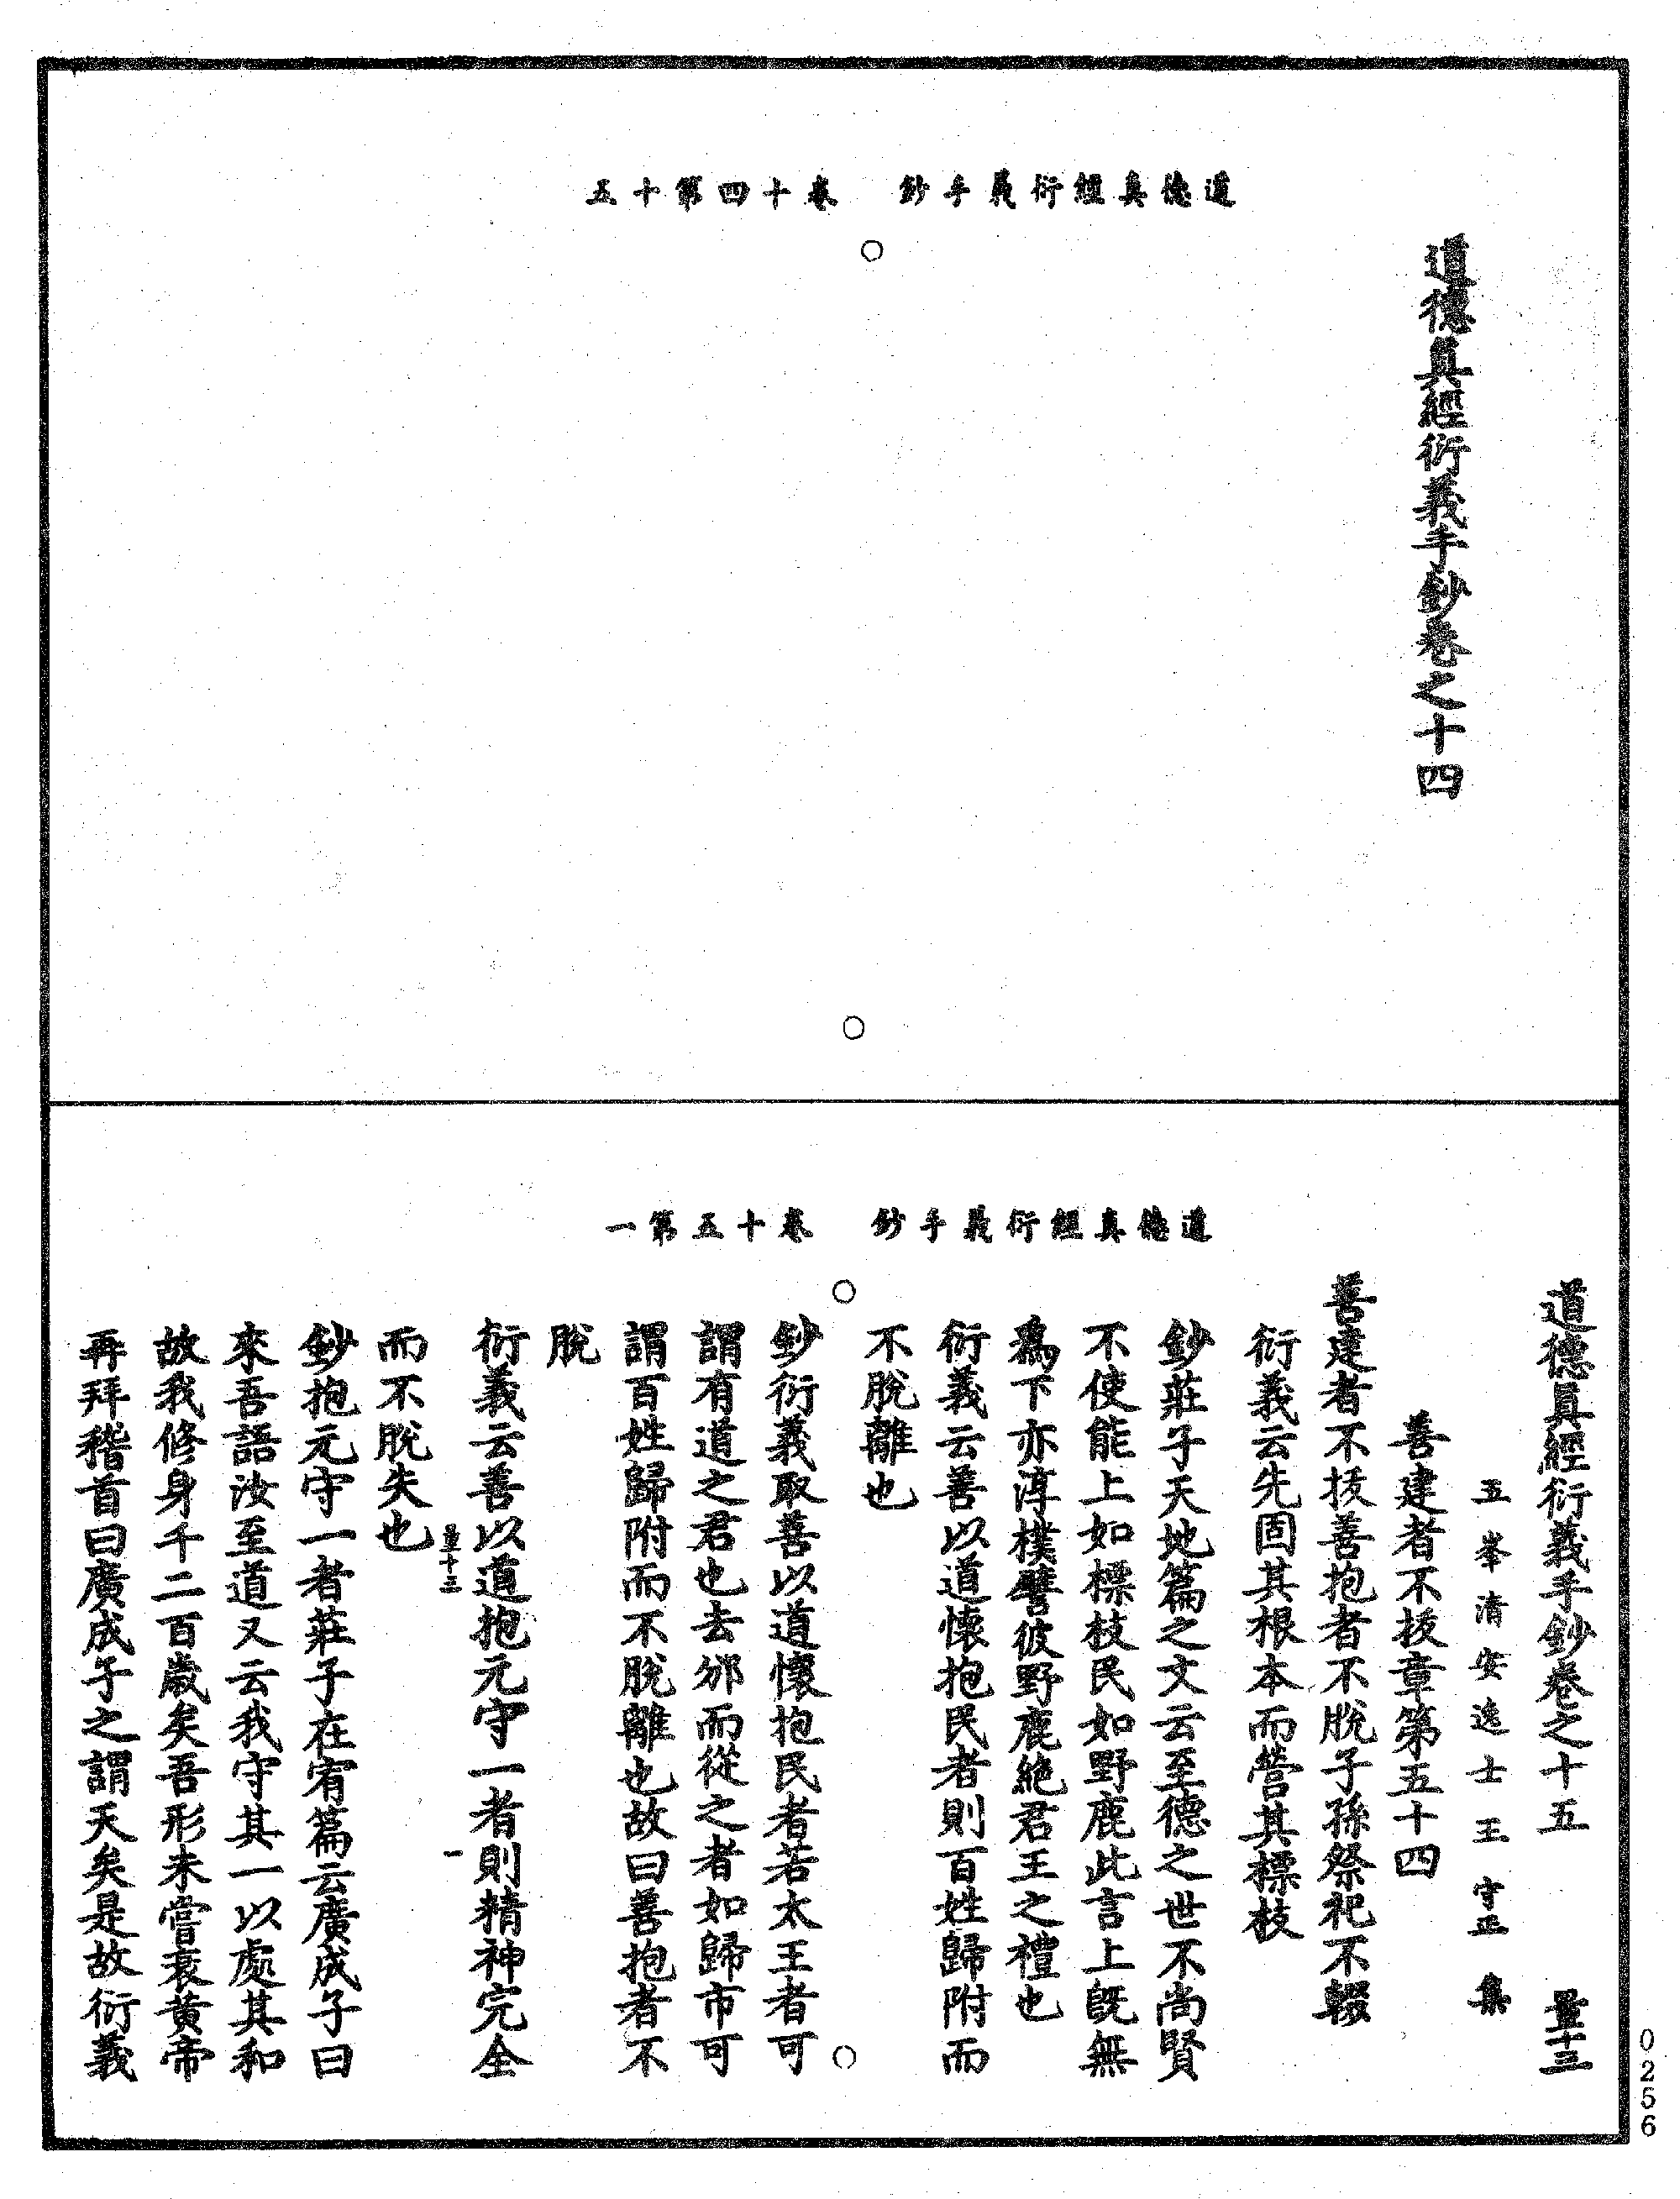 道德真經衍義手鈔　卷十四第十五
道德真經衍義手鈔卷之十四
道德真經衍義手鈔　卷十五第一
道德真經衍義手鈔卷之十五　量十三
五峯清安逸士王守正集
善建者不拔章第五十四
善建者不拔善抱者不脫子孫祭祀不輟
衍義云先固其根本而營其標枝
鈔莊子天地篇之文云至德之世不尚賢
不使能上如標枝民如野鹿此言上旣無
爲下亦淳樸譬彼野鹿絶君王之禮也
衍義云善以道懷抱民者則百姓歸附而
不脫離也
鈔衍義取善以道懷抱民者若太王者可
謂有道之君也去邠而從之者如歸市可
謂百姓歸附而不脫離也故曰善抱者不
脫
衍義云善以道抱元守一者則精神完全
量十三　一
而不脫失也
鈔抱元守一者莊子在宥篇云廣成子曰
來吾語汝至道又云我守其一以處其和
故我修身千二百歲矣吾形未嘗衰黃帝
再拜稽首曰廣成子之謂天矣是故衍義
0256